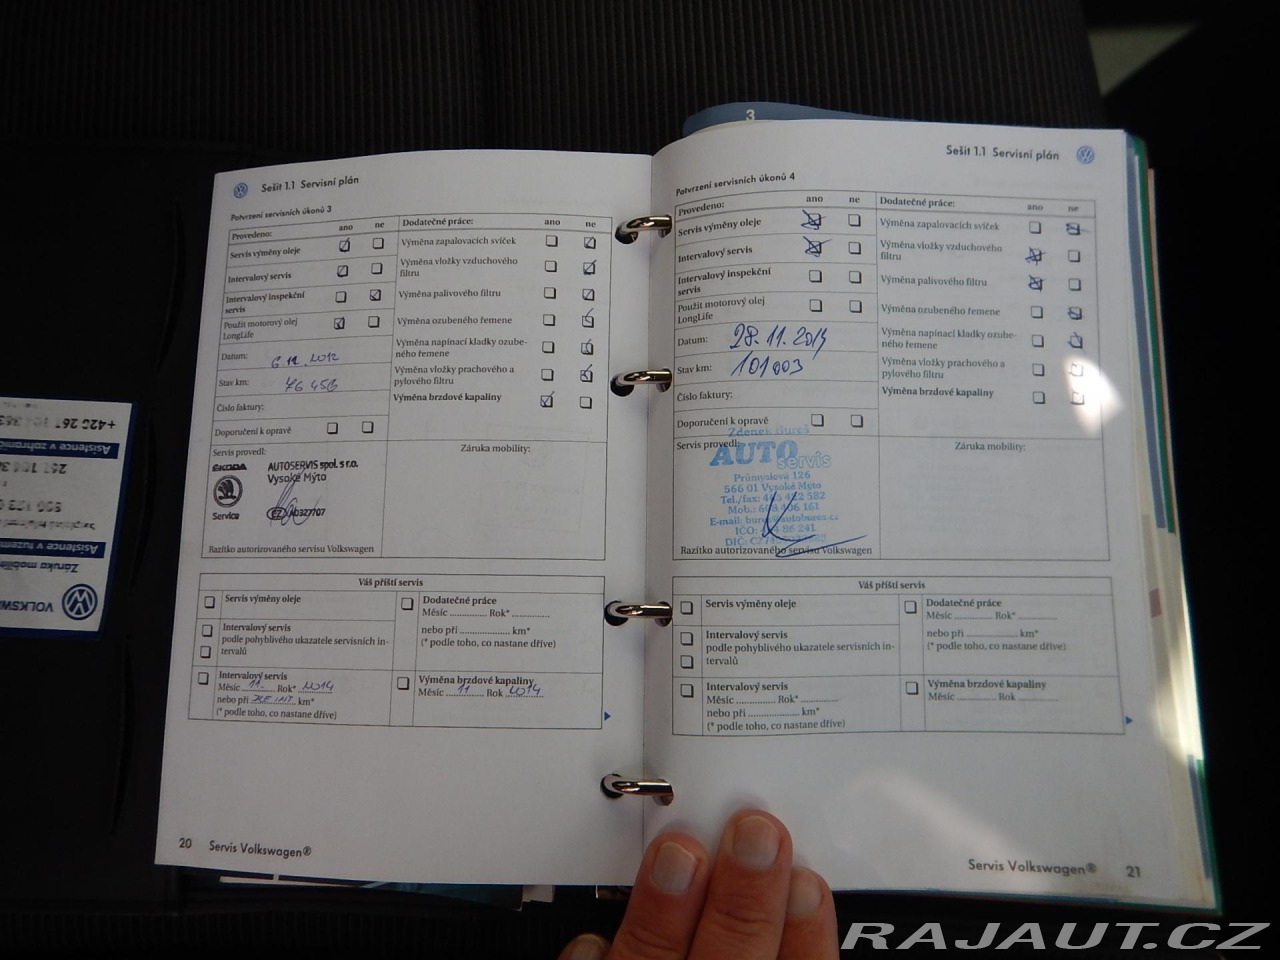 3
Sešit 1.1 Servisní plán
Potvrzení servisních úkonů 3
Provedeno:
ano
ne
Dodatečné práce:
ano
ne
Servis výměny oleje
Výměna zapalovacích svíček
Intervalový servis
Výměna vložky vzduchového
filtru
Intervalový inspekční
servis
Výměna palivového filtru
Použit motorový olej
LongLife
Výměna ozubeného řemene
Datum:
6.11.2012
Výměna napínací kladky ozube-
ného řemene
Stav km:
Výměna vložky prachového a
pylového filtru
Číslo faktury:
Výměna brzdové kapaliny
Doporučení k opravě
Servis provedl:
Záruka mobility:
ŠKODA
AUTOSERVIS spol. s r.o.
Vysoké Mýto
Service
Razítko autorizovaného servisu Volkswagen
Váš příští servis
Servis výměny oleje
Dodatečné práce
Měsíc .............. Rok* ..............
Intervalový servis
podle pohyblivého ukazatele servisních in-
tervalů
nebo při ...................... km*
(* podle toho, co nastane dříve)
Intervalový servis
Měsíc 11. Rok* 2014
nebo při DLE INT. km*
(* podle toho, co nastane dříve)
Výměna brzdové kapaliny
Měsíc 11 Rok 2014
20 Servis Volkswagen®
Sešit 1.1 Servisní plán
Potvrzení servisních úkonů 4
Provedeno:
ano
ne
Dodatečné práce:
ano
ne
Servis výměny oleje
Výměna zapalovacích svíček
Intervalový servis
Výměna vložky vzduchového
filtru
Intervalový inspekční
servis
Výměna palivového filtru
Použit motorový olej
LongLife
Výměna ozubeného řemene
Datum:
28.11.2014
Výměna napínací kladky ozube-
ného řemene
Stav km:
101003
Výměna vložky prachového a
pylového filtru
Číslo faktury:
Výměna brzdové kapaliny
Doporučení k opravě
Servis provedl:
Záruka mobility:
Zdenek Bureš
AUTO
servis
Průmyslová 126
566 01 Vysoké Mýto
Razítko autorizovaného servisu Volkswagen
Váš příští servis
Servis výměny oleje
Dodatečné práce
Měsíc .............. Rok* ..............
Intervalový servis
podle pohyblivého ukazatele servisních in-
tervalů
nebo při ...................... km*
(* podle toho, co nastane dříve)
Intervalový servis
Měsíc .............. Rok* ..............
nebo při ...................... km*
(* podle toho, co nastane dříve)
Výměna brzdové kapaliny
Měsíc .............. Rok ..............
Servis Volkswagen® 21
Asistence v zahranič
Asistence v tuzem
Záruka mobilit
VOLKSWA
RAJAUT.CZ